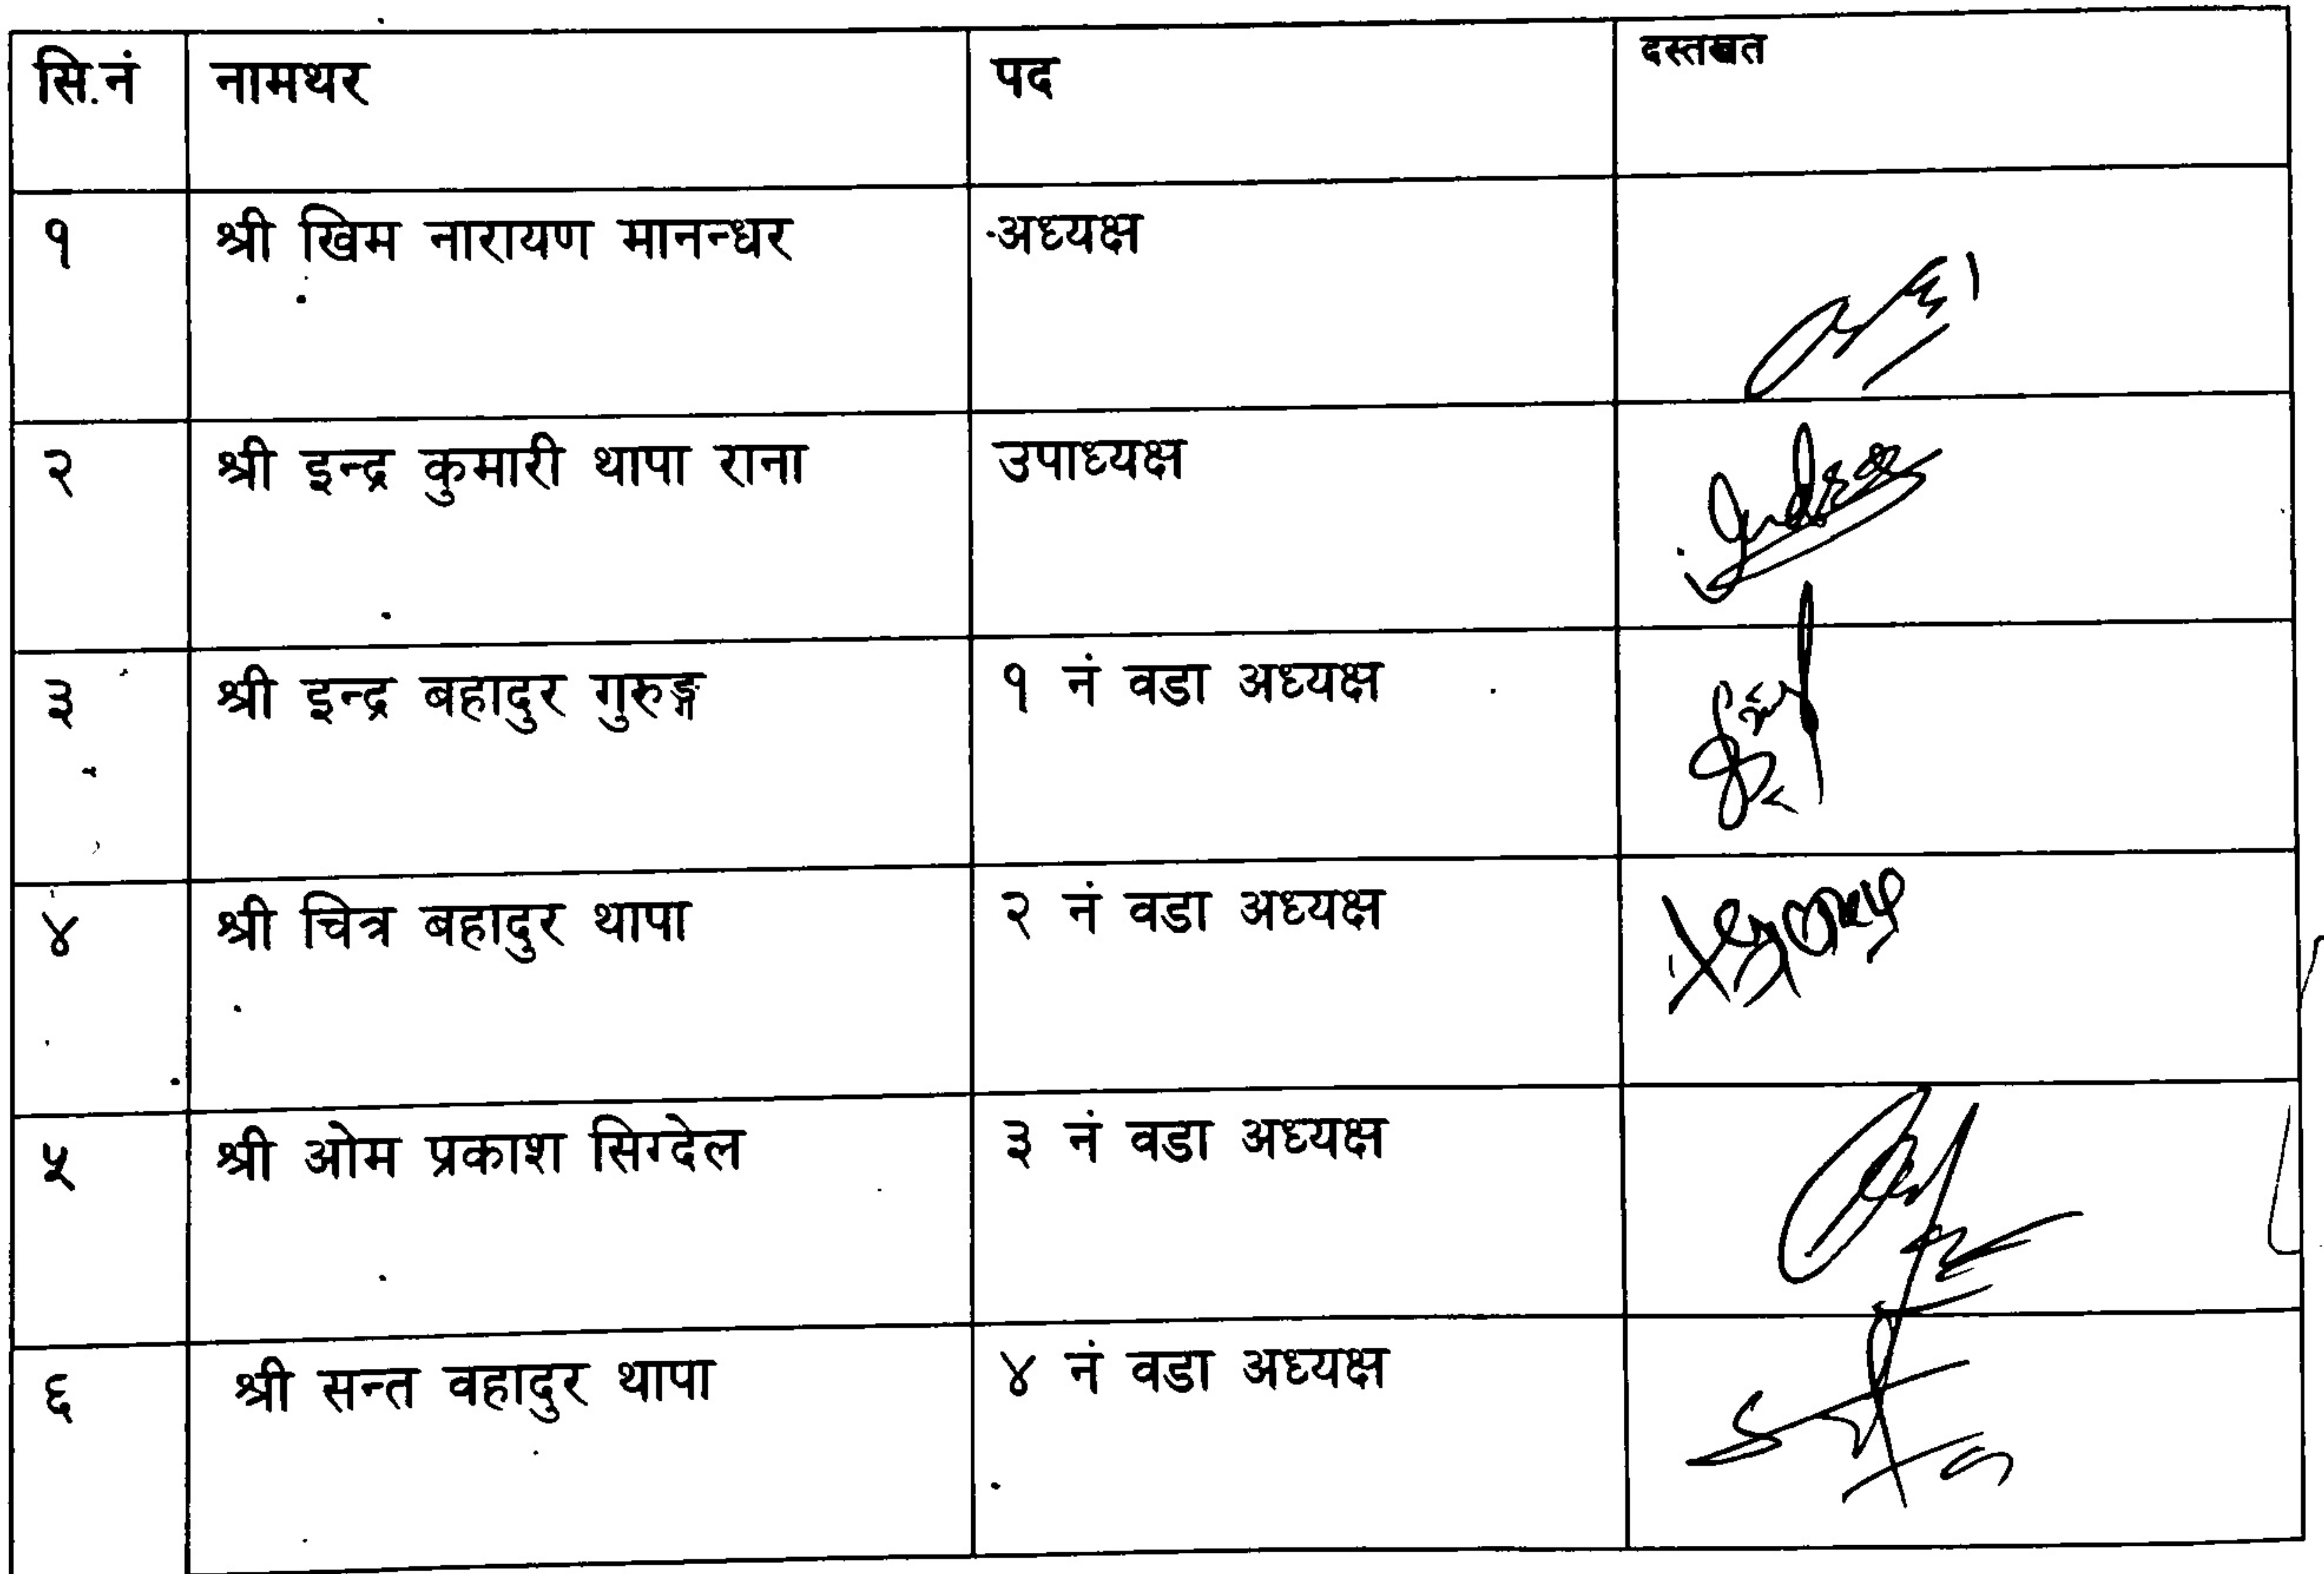 सि.नं नामथर पद दस्तखत
१ श्री खिम नारायण मानन्धर अध्यक्ष
२ श्री इन्द्र कुमारी थापा राना उपाध्यक्ष
३ श्री इन्द्र बहादुर गुरुङ्ग १ नं वडा अध्यक्ष
४ श्री चित्र बहादुर थापा २ नं वडा अध्यक्ष
५ श्री ओम प्रकाश सिग्देल ३ नं वडा अध्यक्ष
६ श्री सन्त वहादुर थापा ४ नं वडा अध्यक्ष